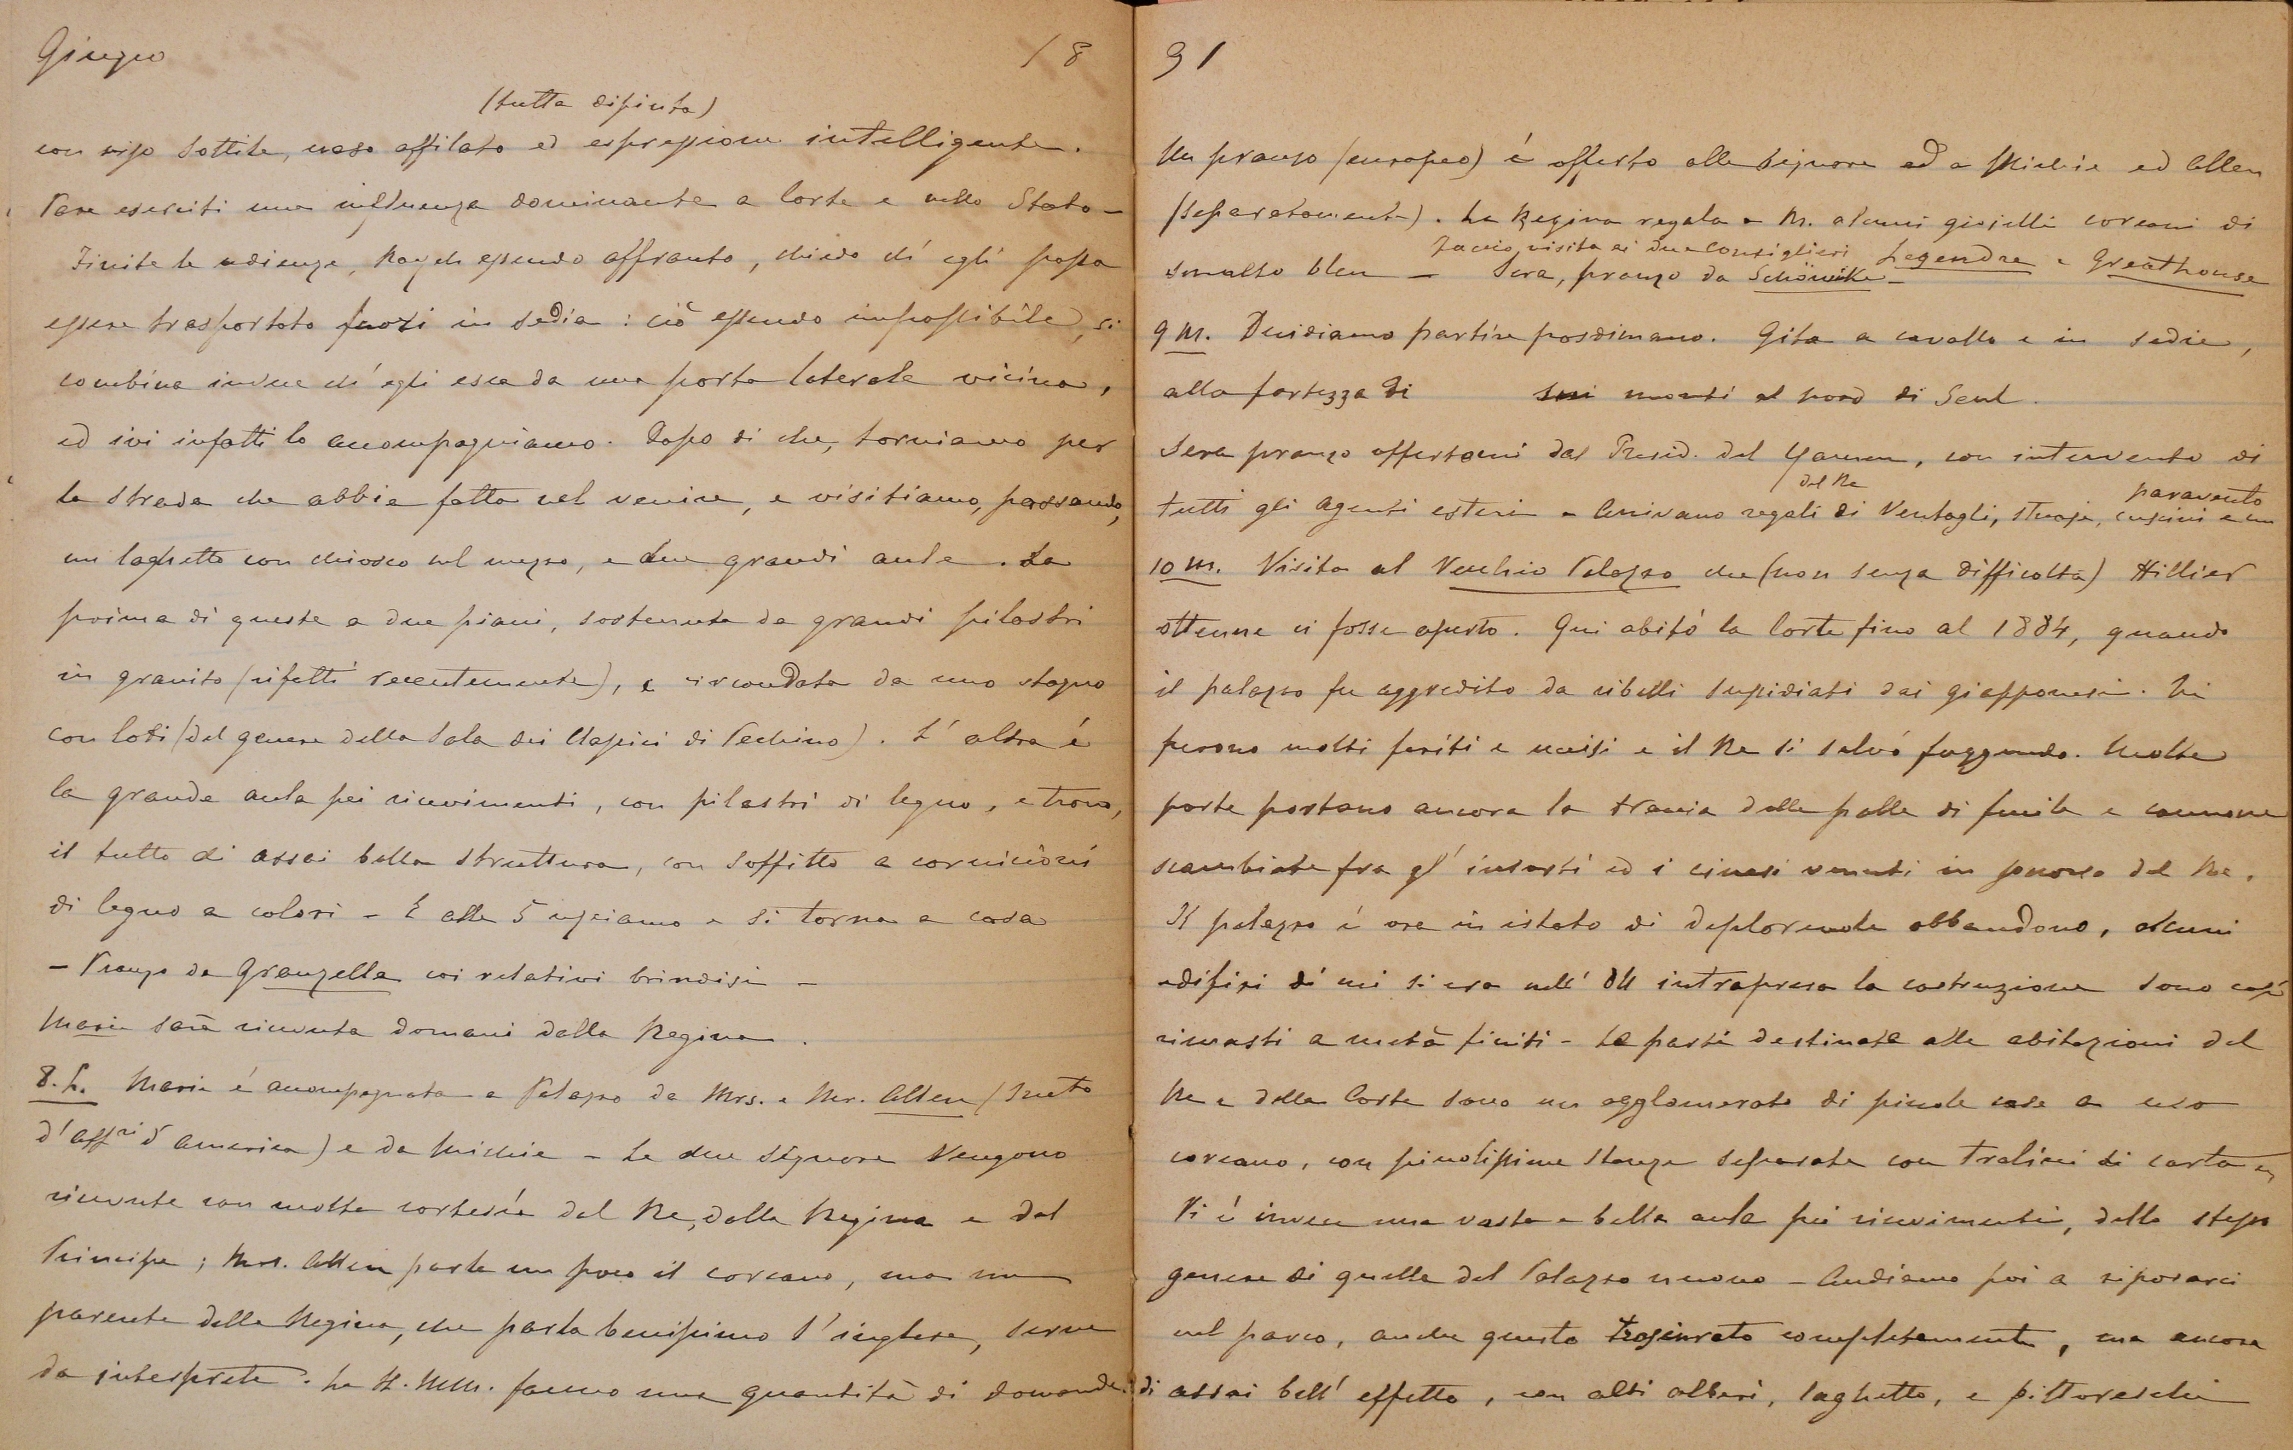 Giugno 18
(tutta dipinta)
con viso sottile, naso affilato ed espressione intelligente.
Pare eserciti una influenza dominante a Corte e nello Stato –
Finite le udienze, essendo affranto, chiedo ch'egli possa
essere trasportato fuori in sedia: ciò essendo impossibile, si
combina invece ch'egli esca da una porta laterale vicina,
ed ivi infatti lo accompagniamo. Dopo di che, torniamo per
la strada che abbia fatta nel venire, e visitiamo, passando,
un laghetto con chiosco nel mezzo, e due grandi aule. La
prima di queste a due piani, sostenuta da grandi pilastri
in granito (rifatti recentemente), e circondata da uno stagno
con loti (del genere della Sala dei Classici di Pechino). L'altra é
la grande aula pei ricevimenti, con pilastri di legno, e trono,
il tutto di assai bella struttura, con soffitto a cornicioni
di legno a colori – E alle 5 usciamo e si torna a casa
– Pranzo da Granzella coi relativi brindisi –
Maria sarà ricevuta domani dalla Regina.
8. L. Maria é accompagnata a Palazzo da Mrs. e Mr. Allen (
d'Affri d'America) e da Michie – Le due signore vengono
ricevute con molta cortesia dal Re, dalla Regina e dal
Principe; Mrs. Allen parla un poco il coreano, ma un
parente della Regina, che parla benissimo l'inglese, serve
da interprete. Le LL. MM. fanno una quantità di domande.
91
Un pranzo (europeo) é offerto alle signore ed a Michie ed Allen
(separatamente). La Regina regala a M. alcuni gioielli coreani di
Faccio visita ai due Consiglieri Legendre e Greathouse
smalto bleu – Sera, pranzo da Schönicke –
9 M. Decidiamo partire posdimano. Gita a cavallo e in sedia,
alla fortezza di sui monti al nord di Seul.
Sera pranzo offertomi dal Presid. del Yamen, con intervento di
del Re paravento
tutti gli Agenti esteri – Arrivano regali di Ventagli, stuoje, cuscini e un
10 M. Visita al Vecchio Palazzo che (non senza difficoltà) Hillier
ottenne ci fosse aperto. Qui abitò la Corte fino al 1884, quando
il palazzo fu aggredito da ribelli sussidiati dai giapponesi. Vi
furono molti feriti e uccisi e il Re si salvò fuggendo. Molte
porte portano ancora la traccia delle palle di fucile e cannone
scambiate fra gl'insorti ed i cinesi venuti in soccorso del Re.
Il palazzo é ora in istato di deplorevole abbandono, alcuni
edifizi di cui si era nell'84 intrapresa la costruzione sono così
rimasti a metà finiti – Le parti destinate alle abitazioni del
Re e della Corte sono un agglomerato di piccole case a uso
coreano, con piccolissime stanze separate con tralicci di carta
Vi é invece una vasta e bella aula pei ricevimenti, dello stesso
genere di quelle del Palazzo nuovo – Andiamo poi a riposarci
nel parco, anche questo trascurato completamente, ma ancora
di assai bell'effetto, con alti alberi, laghetto, e pittoreschi